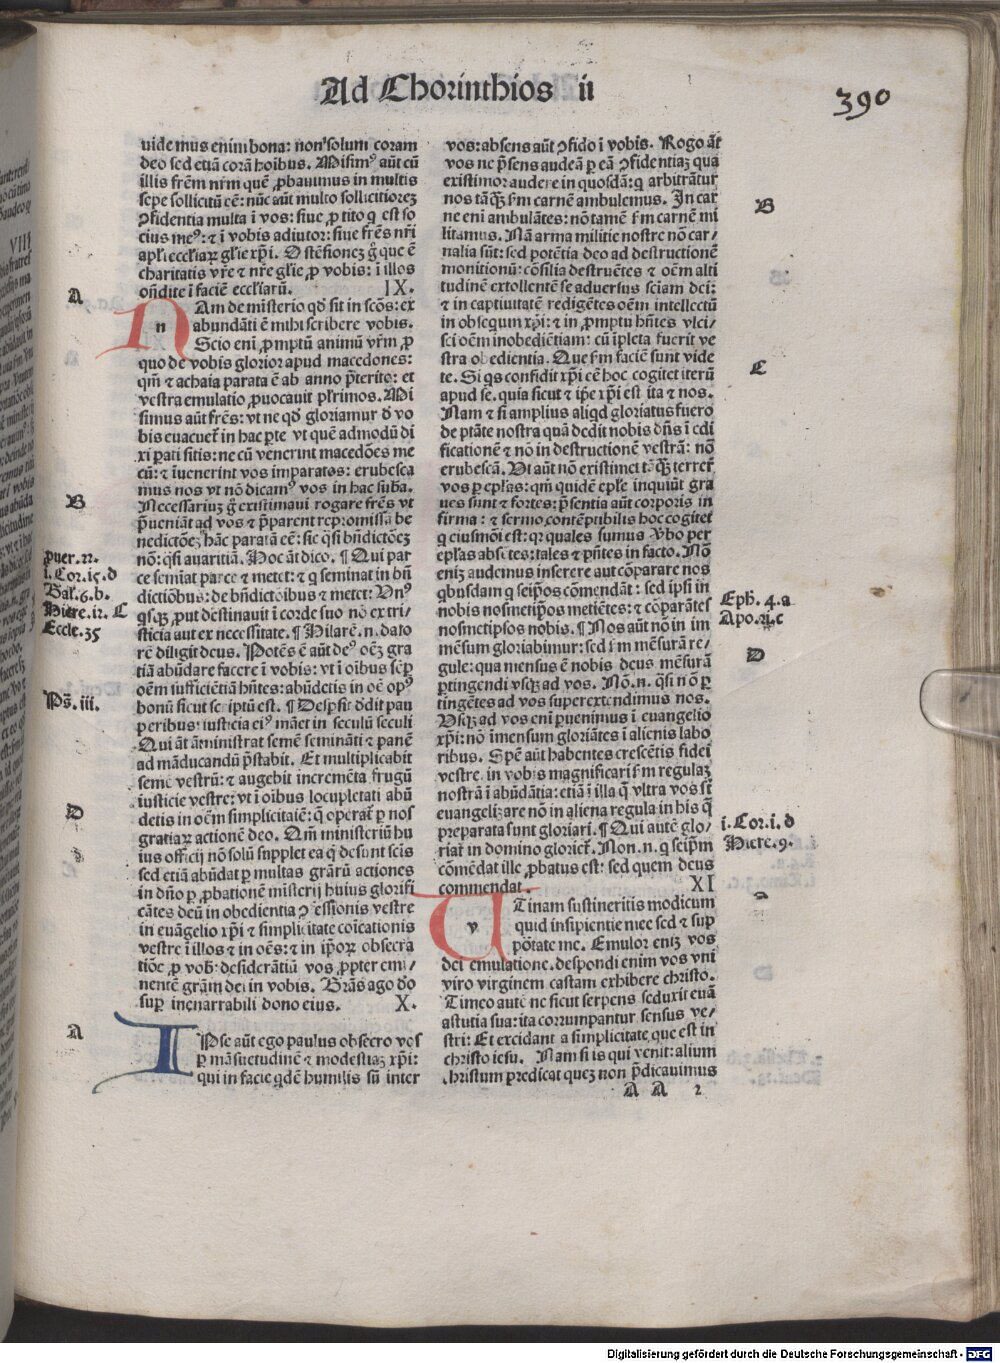 Ad Chorinthios ii
390
uidemus enim hona: non solum coram
deo sed etiā corā hoibus. Misimꝰ aūt cū
illis frēm nr̄m quē ꝓbauimus in multis
sepe sollicitū cē: nūc aūt multo sollicitiorez
ꝯfidentia multa ī vos: siue ꝓ tito q est so
cius meꝰ: ⁊ ī vobis adiutor: siue fr̄es nr̄i
apl̄i eccl̄iaꝝ gl̄ie xp̄i. O stēsionez g̊ que ē
charitatis vr̄e ⁊ nr̄e gl̄ie ꝓ vobis: ī illos
on̄dite ī faciē eccl̄iarū. IX.
A
n
Am de misterio qd̄ fit in scōs: ex
abundāti ē mihi scribere vobis.
Scio enī ꝓmptū animū vr̄m ꝓ
quo de vobis glorior apud macedones:
qm̄ ⁊ achaia parata ē ab anno p̄terito: et
vestra emulatio ꝓuocauit pl̄rimos. Mi
simus aūt fr̄es: vt ne qd̄ gloriamur d̄ vo
bis euacuet̄ in hac ꝑte vt quē admodū di
xi ꝑati sitis: ne cū venerint macedōes me
cū: ⁊ īuenerint vos imparatos: erubesca
mus nos vt nō dicamꝰ vos in hac suba.
B
Necessariuz g̊ existimaui rogare fr̄es vt
p̄ueniāt ad vos ⁊ p̄parent repromissā be
nedictōez hāc paratā cē: sic qsi bn̄dictōez
nō: qsi auaritiā. Hoc āt dico. ¶ Qui par
ce semīat parce ⁊ metet: ⁊ q seminat in bn̄
dictiōbus: de bn̄dictoibus ⁊ metet: Vnꝰ
qsqz ꝓut destinauit ī corde suo nō ex tri/
sticia aut ex necessitate. ¶ Hilarē .n. dato
rē diligit deus. Potēs ē aūt deꝰ oēz gra
tiā abūdare facere ī vobis: vt ī oibus sēp
oēm sufficiētiā hn̄tes: abūdetis in oē opꝰ
bonū sicut scriptū est. ¶ Despsit dedit pau
peribus: iusticia eiꝰ māet in seculū seculi
Qui āt āministrat semē semināti ⁊ panē
ad māducandū p̄stabit. Et multiplicabit
semē vestrū: ⁊ augebit incremēta frugū
iusticie vestre: vt ī oibus locupletati abū
detis in oēm simplicitatē: q̄ operat̄ ꝑ nos
gratiaꝝ actionē deo. Qm̄ ministeriū hu
ius officij nō solū supplet ea q̄ desunt scis
sed etiā abūdat ꝑ multas grārū actiones
in dn̄o ꝑ ꝓbationē misterij huius glorifi
cātes deū in obedientia ꝯfessionis vestre
in euāgelio xp̄i ⁊ simplicitate coīcationis
vestre ī illos ⁊ in oēs: ⁊ in ip̄oꝝ obsecra
tiōe ꝓ vob̄: desiderātiū vos ꝓpter emi/
nentē grām dei in vobis. Grās ago deo
suꝑ inenarrabili dono eius. X.
puer.22.
i.Cor.15.d
Gal.6.b.
Hiere.12. C
Eccle.35
Ps̄. iii.
D
A
I
Pse aūt ego paulus obsecro vos
ꝑ māsuetudinē ⁊ modestiaz xp̄i:
qui in facie qdē humilis sū inter
vos: absens aūt ꝯfido ī vobis. Rogo āt
vos ne p̄sens audeā ꝑ eā ꝯfidentiaz qua
existimor audere in quosdā: q arbitrātur
nos tāqz fm carnē ambulemus. In car
ne enī ambulātes: nō tamē fm carnē mi
litamus. Nā arma militie nostre nō car/
nalia sūt: sed potētia deo ad destructionē
monitionū: cōsilia destruētes ⁊ oēm alti
tudinē extollentē se aduersus sciam dei:
⁊ in captiuitatē redigētes oēm intellectū
in obsequm xp̄i: ⁊ in ꝓmptu hn̄tes vlci/
sci oēm inobediētiam: cū īpleta fuerit ve
stra obedientia. Que fm faciē sunt vide
te. Si qs confidit xp̄i cē hoc cogitet iterū
apud se. quia sicut ⁊ ip̄e xp̄i est ita ⁊ nos.
Nam ⁊ si amplius aliqd gloriatus fuero
de ptāte nostra quā dedit nobis dn̄s ī edi
ficationē ⁊ nō in destructionē vestrā: nō
erubescā. Vt aūt nō existimer tāqz terrer̄
vos ꝑ epl̄as: qm̄ quidē eple inquiūt gra
ues sunt ⁊ fortes: p̄sentia aūt corporis in
firma: ⁊ sermo contēptibilis hoc cogitet
q eiusmōi est: qr quales sumus vbo per
epl̄as absētes: tales ⁊ pn̄tes in facto. Nō
eniz audemus inserere aut cōparare nos
qbusdam q seip̄os cōmendāt: sed ipsi in
nobis nosmetip̄os metiētes: ⁊ cōparātes
nosmetipsos nobis. ¶ Nos aūt nō in im
mēsum gloriabimur: sed fm mēsurā re/
gule: qua mensus ē nobis deus mēsurā
ꝑtingendi vsqz ad vos. Nō .n. qsi nō ꝑ
tingētes ad vos superextendimus nos.
Vsqz ad vos enī ꝑuenimus ī euangelio
xp̄i: nō īmensum gloriātes ī alienis labo
ribus. Spē aūt habentes crescētis fidei
vestre in vobis magnificari fm regulaz
nostrā ī abūdātia: etiā ī illa q̄ vltra vos st̄
euangelizare nō in aliena regula in his q̄
preparata sunt gloriari. ¶ Qui autē glo/
riat̄ in domino gloriet̄. Non .n. q seip̄m
cōmēdat ille ꝓbatus est: sed quem deus
commendat. XI
B
C
Eph. 4.a
Apo.21.c
D
i.Cor.i.d
Hiere.9.
a
v
Tinam sustineritis modicum
quid insipientie mee sed ⁊ sup
pōtate me. Emulor eniz vos
dei emulatione. despondi enim vos vni
viro virginem castam exhibere christo.
Timeo autē ne sicut serpens seduxit euā
astutia sua: ita corrumpantur sensus ve/
stri: Et excidant a simplicitate que est in
christo iesu. Nam si is qui venit: alium
christum predicat quez non p̄dicauimus
A A 2
Digitalisierung gefördert durch die Deutsche Forschungsgemeinschaft - DFG